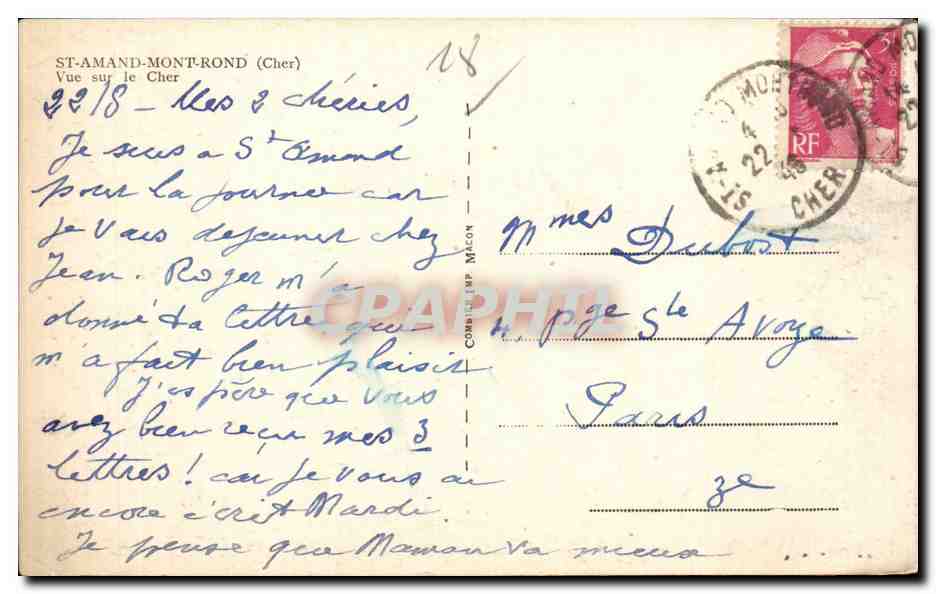 ST-AMAND-MONT-ROND (Cher)
Vue sur le Cher
18
22/8 - Mes 2 chéries,
Je suis a St Amand
pour la journee car
je vais dejeuner chez
Jean. Roger m'a
donné ta lettre qui
m'a fait bien plaisir
J'espère que vous
avez bien reçu mes 3
lettres! car je vous ai
encore écrit Mardi.
Je pense que Maman va mieux ....
COMBIER IMP. MACON
Mmes Dubost
4, pge Ste Avoye
Paris
3e
ST-A MONTROND
22
CHER
RF
CPAPHIL